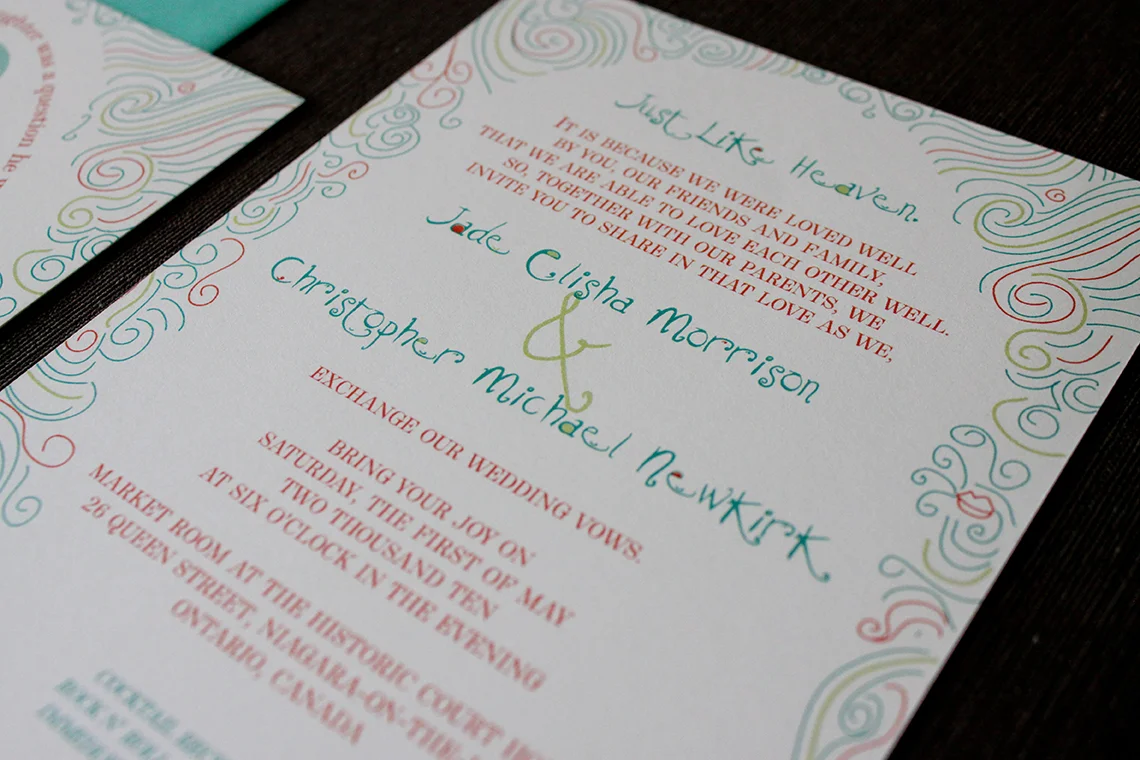 ghter was a question he
Just Like Heaven.
IT IS BECAUSE WE WERE LOVED WELL
BY YOU, OUR FRIENDS AND FAMILY,
THAT WE ARE ABLE TO LOVE EACH OTHER WELL.
SO, TOGETHER WITH OUR PARENTS, WE
INVITE YOU TO SHARE IN THAT LOVE AS WE,
Jade Elisha Morrison
&
Christopher Michael Newkirk
EXCHANGE OUR WEDDING VOWS.
BRING YOUR JOY ON
SATURDAY, THE FIRST OF MAY
TWO THOUSAND TEN
AT SIX O'CLOCK IN THE EVENING
MARKET ROOM AT THE HISTORIC COURT HO
26 QUEEN STREET, NIAGARA-ON-THE-
ONTARIO, CANADA
COCKTAIL
ROCK N' ROL